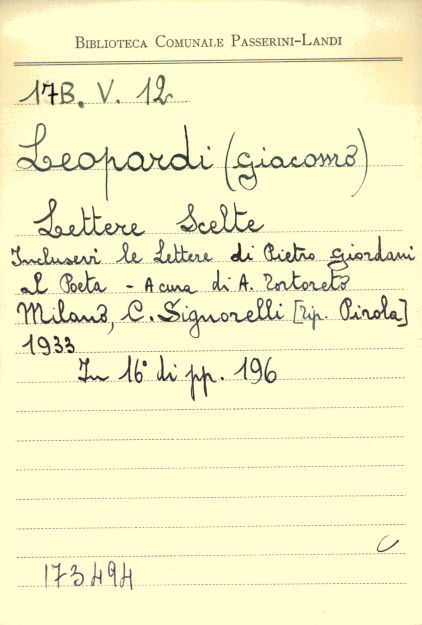 BIBLIOTECA COMUNALE PASSERINI-LANDI
17B. V. 12
Leopardi (Giacomo)
Lettere Scelte
Inclusevi le Lettere di Pietro Giordani
al Poeta - A cura di A. Tortoreto
Milano, C. Signorelli [Tip. Pirola]
1933
In 16° di pp. 196
C
173494